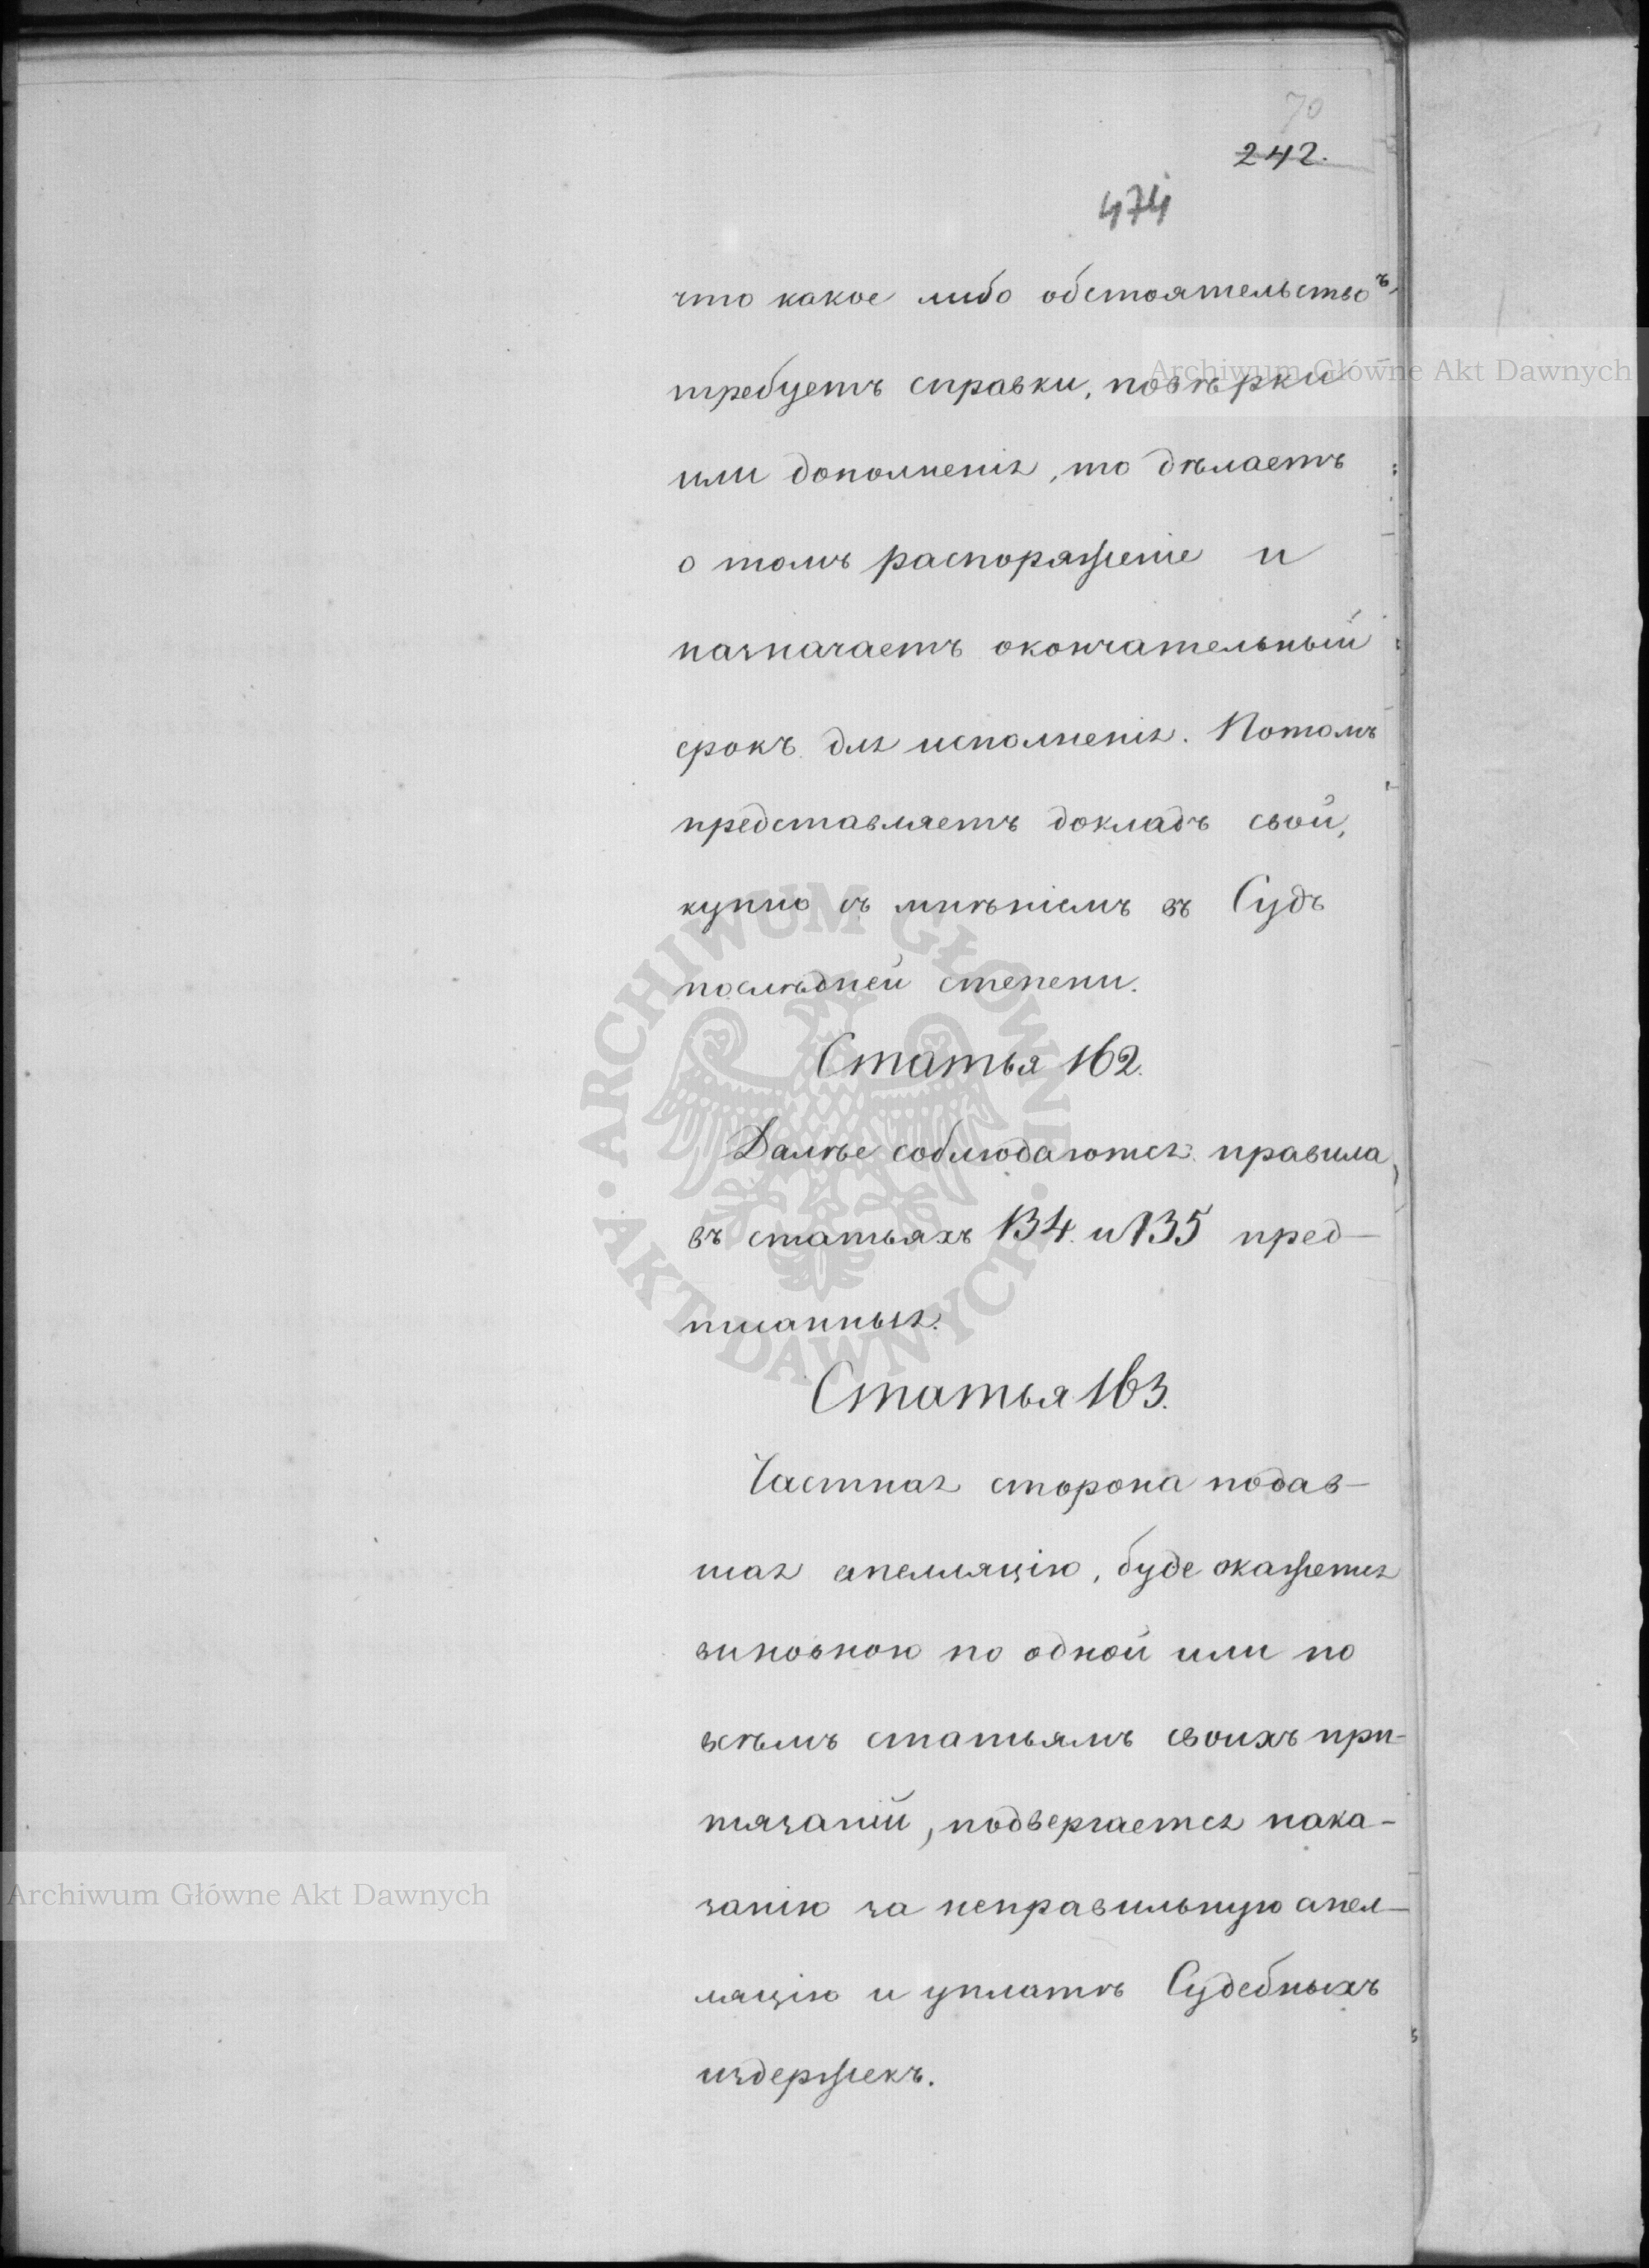 70
242.
474
что какое либо обстоятельство
требуетъ справки, повѣрки
или дополненія, то дѣлаетъ
о томъ распоряженіе и
назначаетъ окончательный
срокъ для исполненія. Потомъ
представляетъ докладъ свой,
купно съ мнѣніемъ въ Судъ
послѣдней степени.
Статья 162.
Далѣе соблюдаются правила
въ статьяхъ 134. и 135 пред-
писанныя.
Статья 163.
Частная сторона подав-
шая апелляцію, буде окажется
виновною по одной или по
всѣмъ статьямъ своихъ при-
тязаній, подвергается нака-
занію за неправильную апел-
ляцію и уплатѣ Судебныхъ
издержекъ.
Archiwum Główne Akt Dawnych
ARCHIWUM GŁÓWNE
AKT DAWNYCH
Archiwum Główne Akt Dawnych